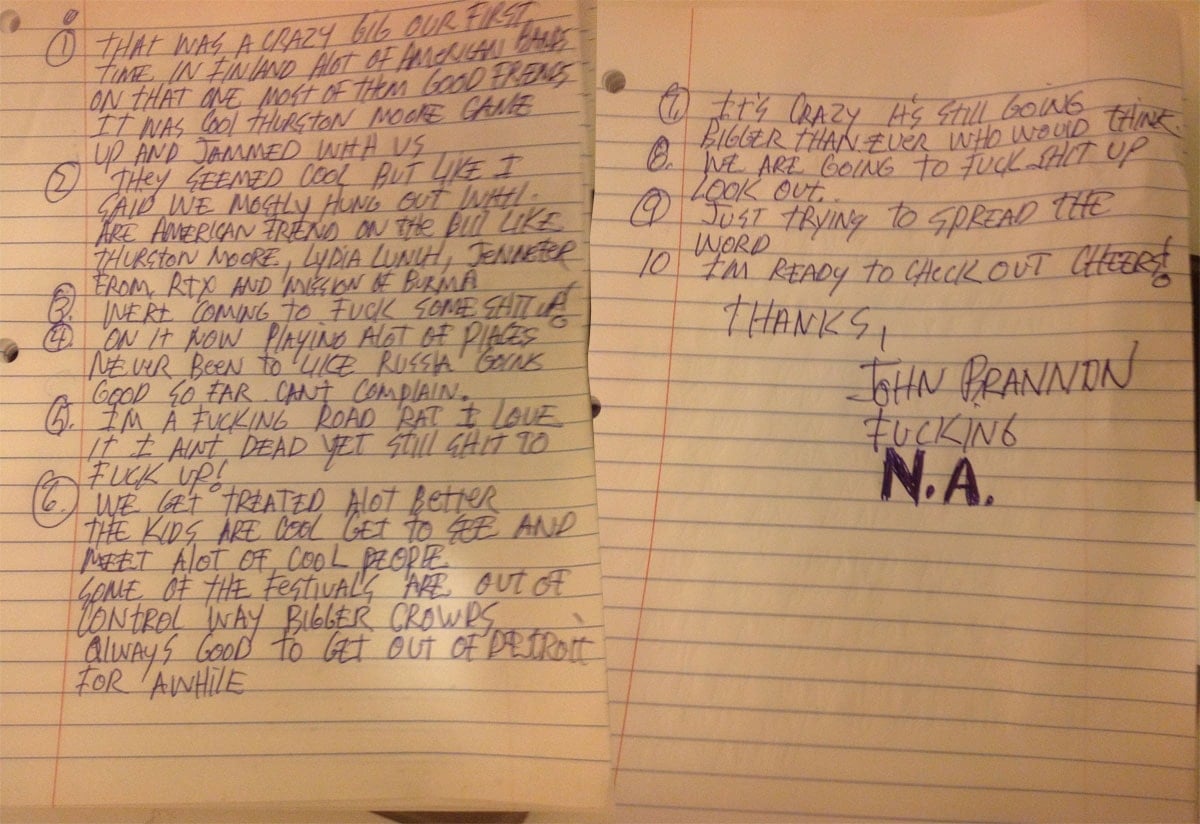 ① THAT WAS A CRAZY GIG OUR FIRST
TIME IN FINLAND ALOT OF AMERICAN BANDS
ON THAT ONE MOST OF THEM GOOD FRIENDS
IT WAS COOL THURSTON MOORE CAME
UP AND JAMMED WITH US
② THEY SEEMED COOL BUT LIKE I
SAID WE MOSTLY HUNG OUT WITH
ARE AMERICAN FRIEND ON THE BILL LIKE
THURSTON MOORE, LYDIA LUNCH, JENNEFER
FROM RTX AND MISSION OF BURMA
③. WERE COMING TO FUCK SOME SHIT UP!
④. ON IT NOW PLAYING ALOT OF PLACES
NEVER BEEN TO LIKE RUSSIA GOING
GOOD SO FAR CANT COMPLAIN.
⑤. I'M A FUCKING ROAD RAT I LOVE
IT I AINT DEAD YET STILL SHIT TO
FUCK UP!
⑥. WE GET TREATED ALOT BETTER
THE KIDS ARE COOL GET TO SEE AND
MEET ALOT OF COOL PEOPLE
SOME OF THE FESTIVALS ARE OUT OF
CONTROL WAY BIGGER CROWDS
ALWAYS GOOD TO GET OUT OF DETROIT
FOR AWHILE
⑦ IT'S CRAZY IT'S STILL GOING
BIGGER THAN EVER WHO WOULD THINK.
⑧. WE ARE GOING TO FUCK SHIT UP
LOOK OUT..
⑨ JUST TRYING TO SPREAD THE
WORD
10 I'M READY TO CHECK OUT CHEERS!
THANKS,
JOHN BRANNON
FUCKING
N.A.